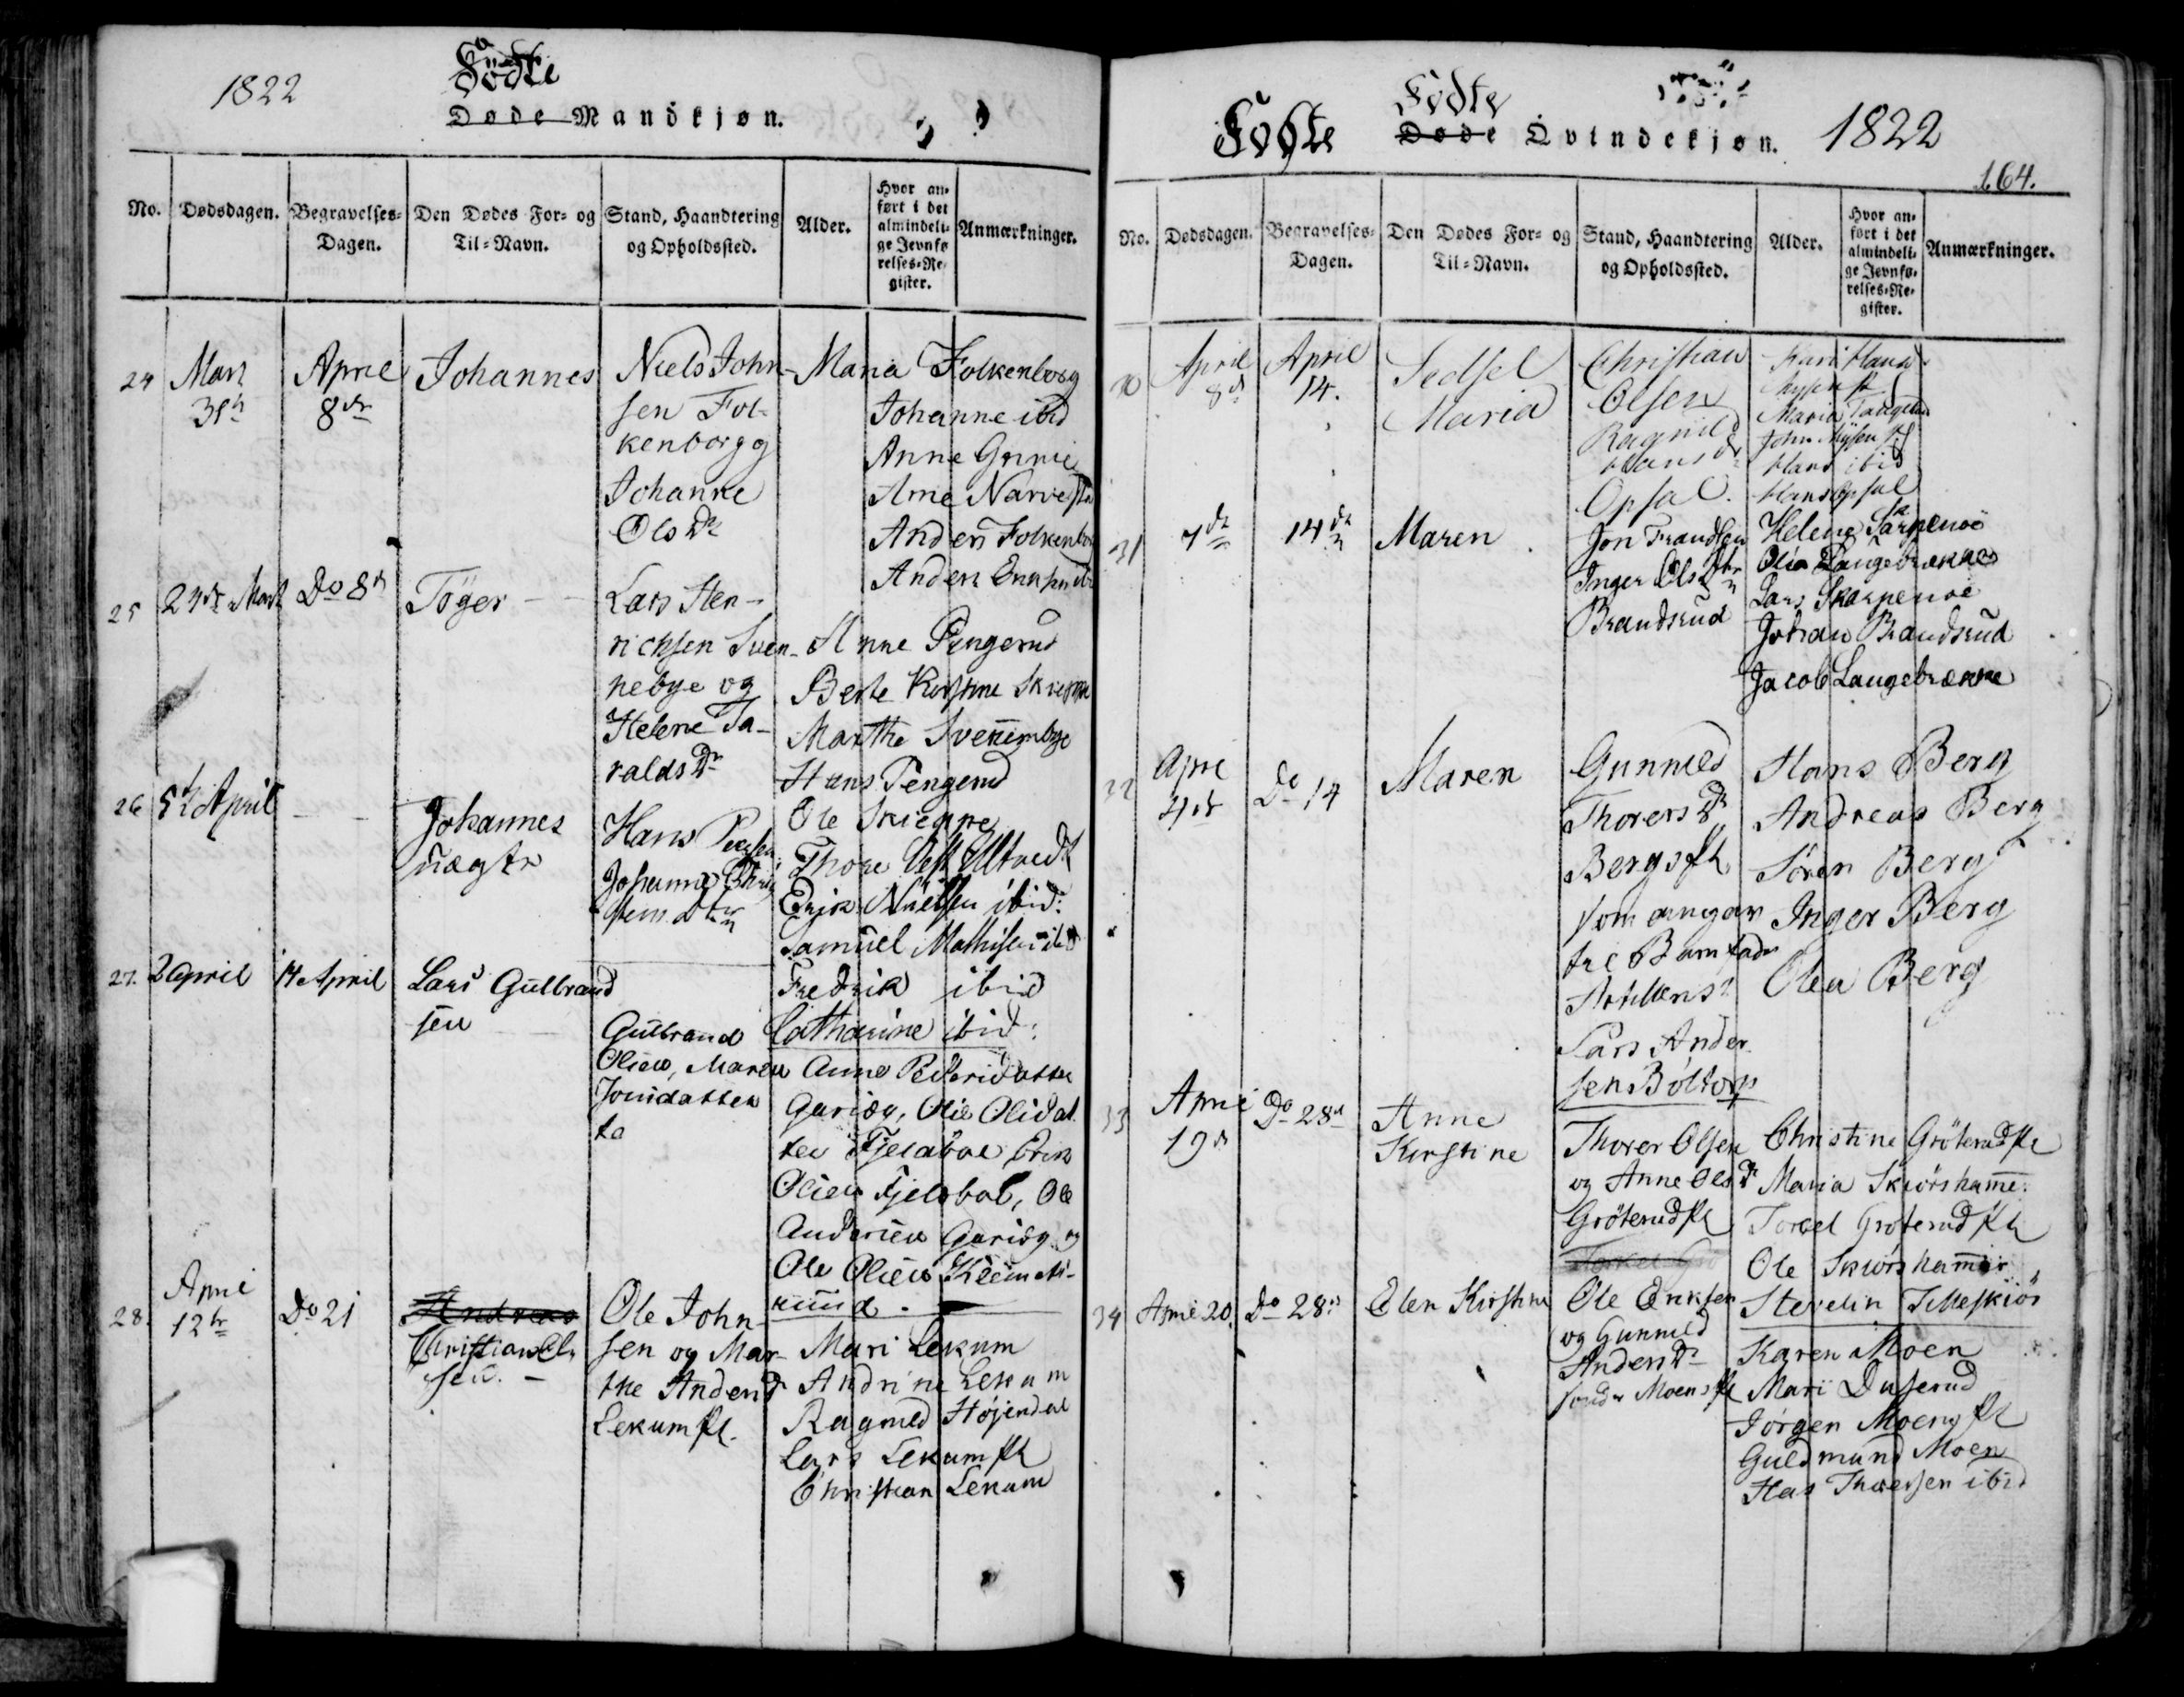 1822
Födte
Døde Mandkjøn.
No.
Dødsdagen.
Begravelses-
Dagen.
Den Dødes For- og
Til-Navn.
Stand, Haandtering
og Opholdssted.
Alder.
Hvor an-
ført i det
almindeli-
ge Jevnfø-
relses-Re-
gister.
Anmærkninger.
24
Marz
31
April
8de
Johannes
Niels John-
sen Fol-
kenborg og
Johanne
Olsdr
Maria Folkenborg
Johanne ibid
Anne
Arne
Anders Folkenbor
Anders
25
Marz
Do 8
Töger
Lars Hen-
richsen Sven-
nebye og
Helene Ta-
raldsdr
Anne Pengerud
Berte Kirstine
Marthe Svennebye
Hans Pengerud
Ole Skieppe
26
5te April
Johannes
uægte
Hans
Johanne
Thore
Erik Nielsen ibid:
Samuel Mathisen ibid
Fredrik ibid
Catharine ibid:
27.
2 April
14 April
Lars Gulbrand
sen
Gulbrand
Olsen, Maren
Jonsdatter
Anne Pedersdatter
Olsdat
ter Fjeldbal, Erik
Olsen Fjeldbal, Ole
Andersen
Ole Olsen
rud.
28.
April
12te
Do 21
Andreas
Christian Ol-
sen.
Ole John-
sen og Mar-
the Andersdr
Lekum
Mari Lekum
Andrine Lekum
Ragnild Höjendal
Lars Lekum
Christian Lekum
Födte
Födte
Døde Qvindekjøn.
1822
164.
No.
Dødsdagen.
Begravelses-
Dagen.
Den Dødes For- og
Til-Navn.
Stand, Haandtering
og Opholdssted.
Alder.
Hvor an-
ført i det
almindeli-
ge Jevnfø-
relses-Re-
gister.
Anmærkninger.
April
8de
April
14.
Sedsel
Maria
Christian
Olsen
Ragnild
Hansdr
Opsal.
Kari
Maria
John Mysen
Hans ibid
Hans Opsal
31
7de
14de
Maren
Jon
Inger Olsdtr
Brandsrud
Helene Skarpenoe
Olia Langebrække
Lars Skarpenoe
Johan Brandsrud
Jacob Langebrække
32
April
4de
Do 14
Maren
Gunnild
Thoresdr
Bergs
som angav
til Barnefader
Lars Ander
sen
Hans Berg
Andreas Berg
Søren Berg
Inger Berg
Olea Berg
33
April
19de
Do 28
Anne
Kirstine
Thorer Olsen
og Anne Olsdr
Gröterud
Christine Gröterud
Maria Skiörshamme.
Torkel Gröterud
Ole Skiörshammer
Stevelin
34
April 20.
Do 28
Elen Kirstine
Ole Eriksen
og Gunnild
Andersdr
Moens
Karen Moen
Mari Duserud
Jörgen Moen
Guldmund Moen
ibid